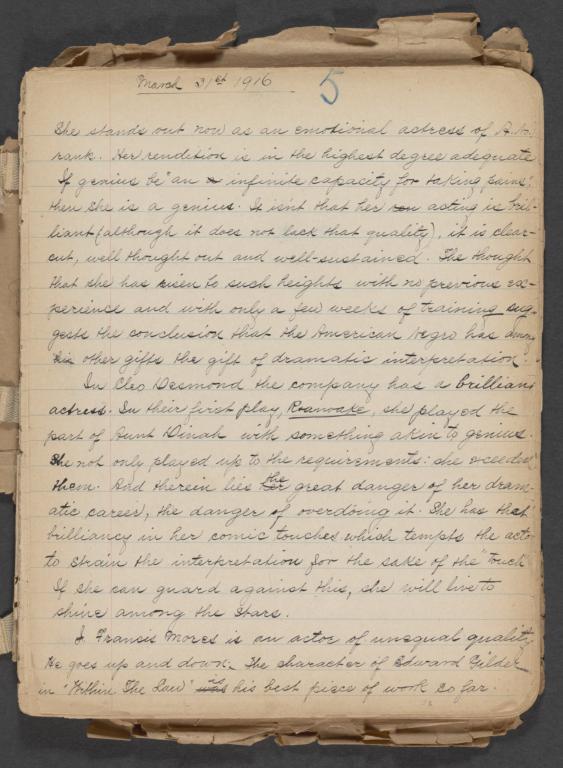 March 31st 1916
5
She stands out now as an emotional actress of A. No. 1
rank. Her rendition is in the highest degree adequate
If genius be "an a infinite capacity for taking pains",
then she is a genius. It isn't that her acting is bril-
liant (although it does not lack that quality), it is clear-
cut, well thought out and well-sustained. The thought
that she has risen to such heights with no previous ex-
perience and with only a few weeks of training sug-
gests the conclusion that the American Negro has among
his other gifts the gift of dramatic interpretation.
In Cleo Desmond the company has a brilliant
actress. In their first play, Roanoake, she played the
part of Aunt Dinah with something akin to genius.
She not only played up to the requirements: she exceeded
them. And therein lies the great danger of her dram-
atic career, the danger of overdoing it. She has that
brilliancy in her comic touches which tempts the actor
to strain the interpretation for the sake of the "touch"
If she can guard against this, she will live to
shine among the stars.
J. Francis Mores is an actor of unequal quality
He goes up and down. The character of Edward Gilder
in "Within The Law" is his best piece of work so far.